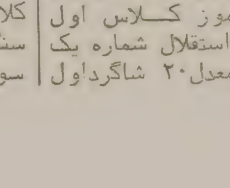 موز کلاس اول
استقلال شماره یک
معدل۲۰ شاگرداول
کلا
سنگ
سو